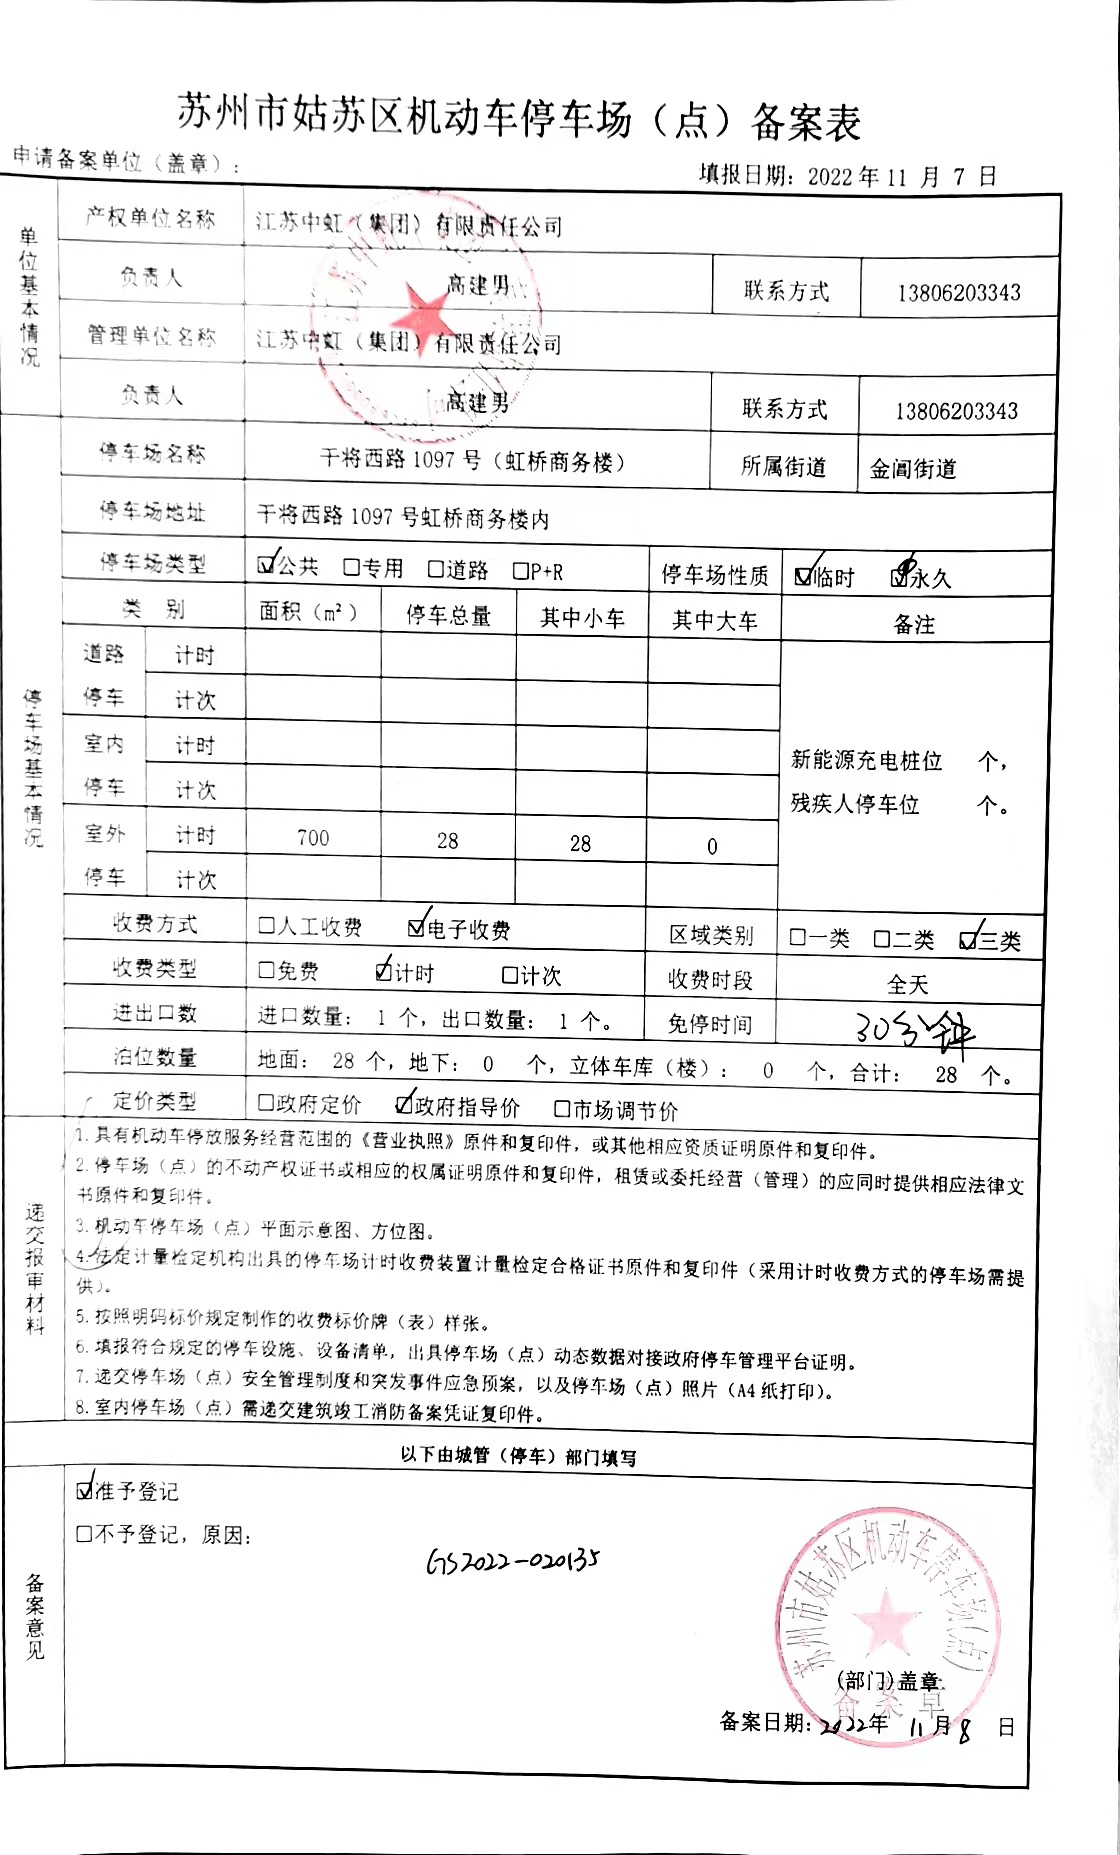 苏州市姑苏区机动车停车场（点）备案表
申请备案单位（盖章）：
填报日期：2022年11月7日
单位基本情况
产权单位名称 江苏中虹（集团）有限责任公司
负责人 高建男 联系方式 13806203343
管理单位名称 江苏中虹（集团）有限责任公司
负责人 高建男 联系方式 13806203343
停车场基本情况
停车场名称 干将西路1097号（虹桥商务楼） 所属街道 金阊街道
停车场地址 干将西路1097号虹桥商务楼内
停车场类型 ☑公共 □专用 □道路 □P+R 停车场性质 ☑临时 ☑永久
类 别 面积（m²） 停车总量 其中小车 其中大车 备注
道路停车 计时
计次
室内停车 计时
计次
新能源充电桩位 个，
残疾人停车位 个。
室外停车 计时 700 28 28 0
计次
收费方式 □人工收费 ☑电子收费 区域类别 □一类 □二类 ☑三类
收费类型 □免费 ☑计时 □计次 收费时段 全天
进出口数 进口数量： 1 个，出口数量： 1 个。 免停时间 30分钟
泊位数量 地面： 28 个，地下： 0 个，立体车库（楼）： 0 个，合计： 28 个。
定价类型 □政府定价 ☑政府指导价 □市场调节价
递交报审材料
1.具有机动车停放服务经营范围的《营业执照》原件和复印件，或其他相应资质证明原件和复印件。
2.停车场（点）的不动产权证书或相应的权属证明原件和复印件，租赁或委托经营（管理）的应同时提供相应法律文
书原件和复印件。
3.机动车停车场（点）平面示意图、方位图。
4.法定计量检定机构出具的停车场计时收费装置计量检定合格证书原件和复印件（采用计时收费方式的停车场需提
供）。
5.按照明码标价规定制作的收费标价牌（表）样张。
6.填报符合规定的停车设施、设备清单，出具停车场（点）动态数据对接政府停车管理平台证明。
7.递交停车场（点）安全管理制度和突发事件应急预案，以及停车场（点）照片（A4纸打印）。
8.室内停车场（点）需递交建筑竣工消防备案凭证复印件。
以下由城管（停车）部门填写
备案意见
☑准予登记
□不予登记，原因：
GS2022-020135
苏州市姑苏区机动车停车场（点）
（部门）盖章
备案章
备案日期：2022年11月8日